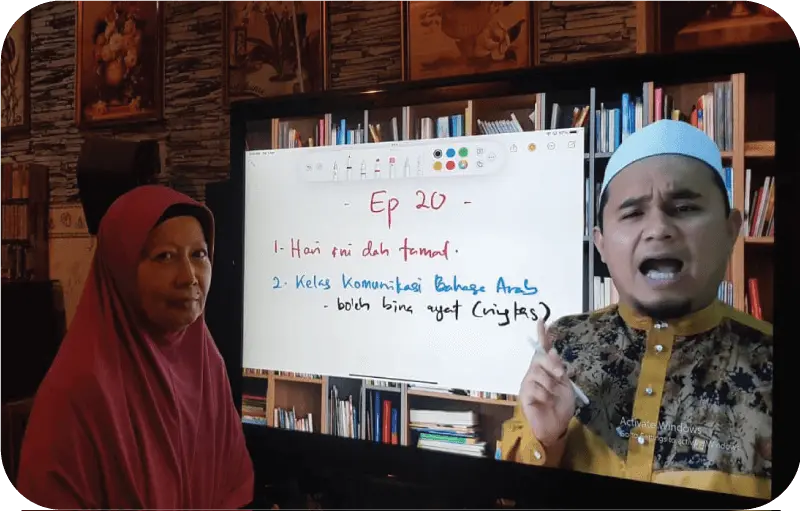 - Ep 20 -
1- Hari ini dah tamat.
2. Kelas Komunikasi Bahasa Arab
- boleh bina ayat (ringkas)
Activate Windows
Go to Settings to activate Windows.